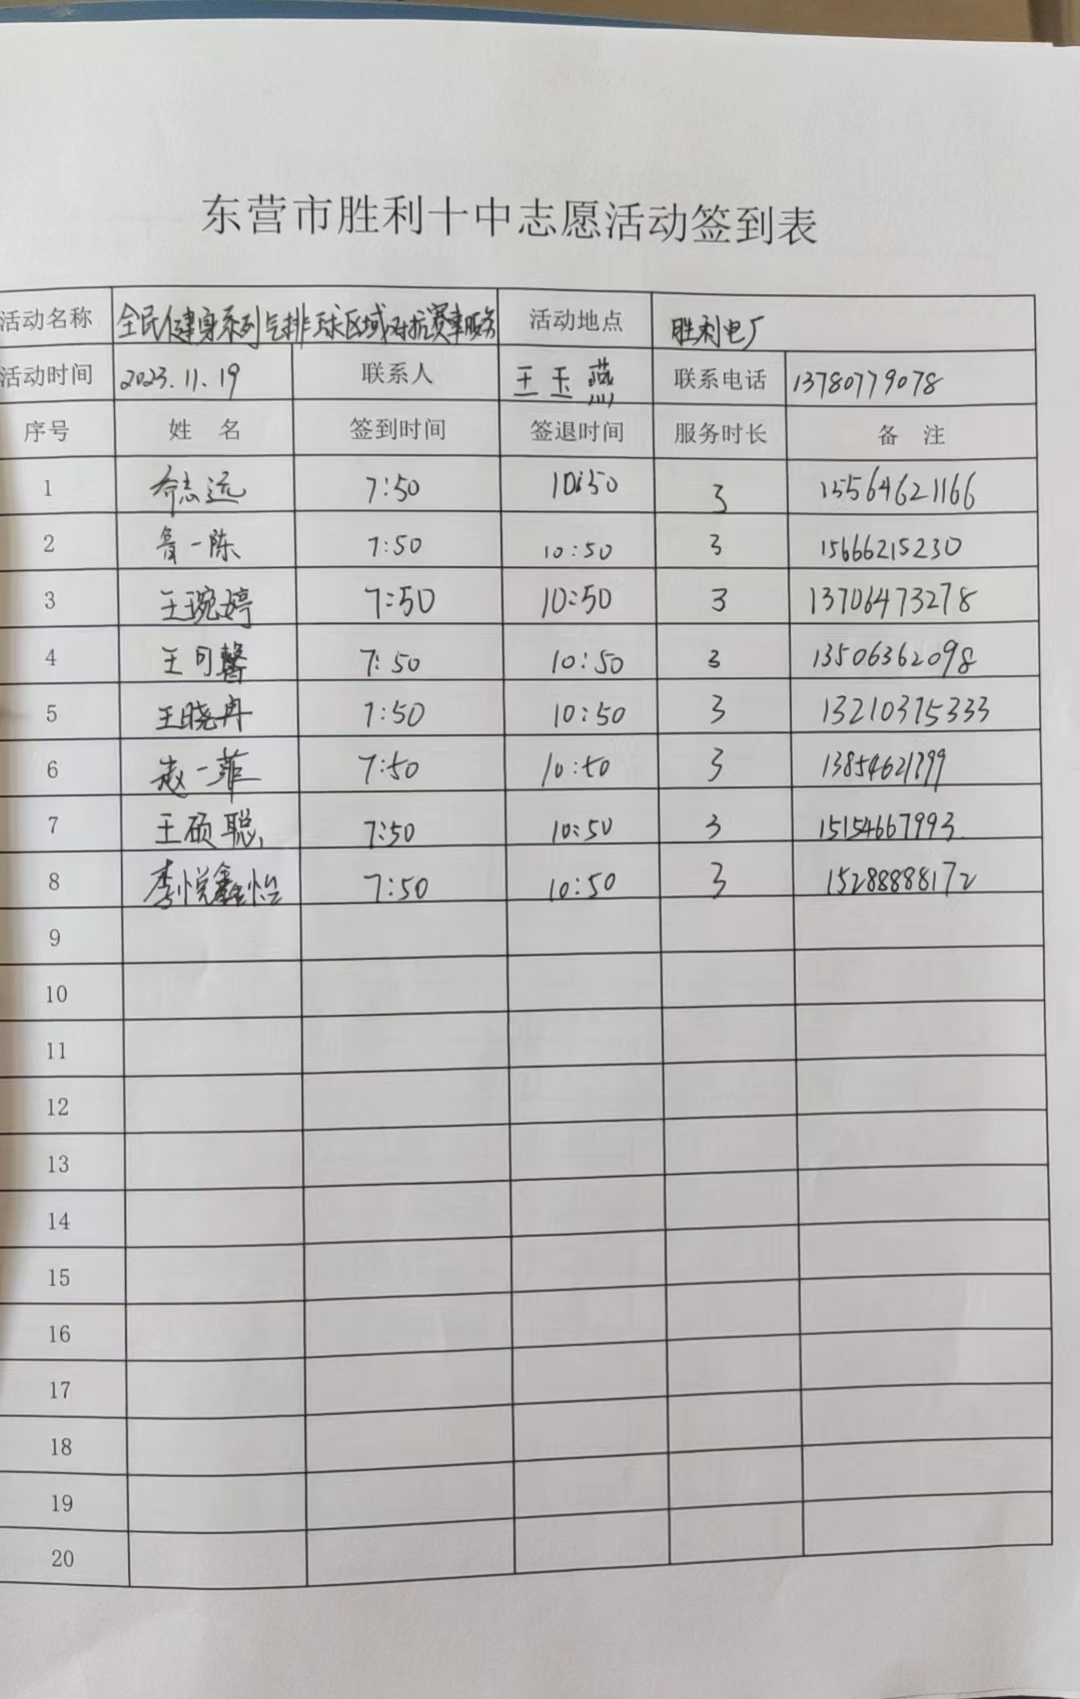 东营市胜利十中志愿活动签到表
活动名称 全民健身系列气排球区域对抗赛服务 活动地点 胜利电厂
活动时间 2023.11.19 联系人 王玉燕 联系电话 13780779078
序号 姓 名 签到时间 签退时间 服务时长 备 注
1 乔志远 7:50 10:50 3 15564621166
2 鲁一陈 7:50 10:50 3 15666215230
3 王琬婷 7:50 10:50 3 13706473278
4 王可馨 7:50 10:50 3 13506362098
5 王晓冉 7:50 10:50 3 13210375333
6 赵一菲 7:50 10:50 3
7 王硕聪 7:50 10:50 3 15154667993
8 李悦鑫怡 7:50 10:50 3 15288888172
9
10
11
12
13
14
15
16
17
18
19
20